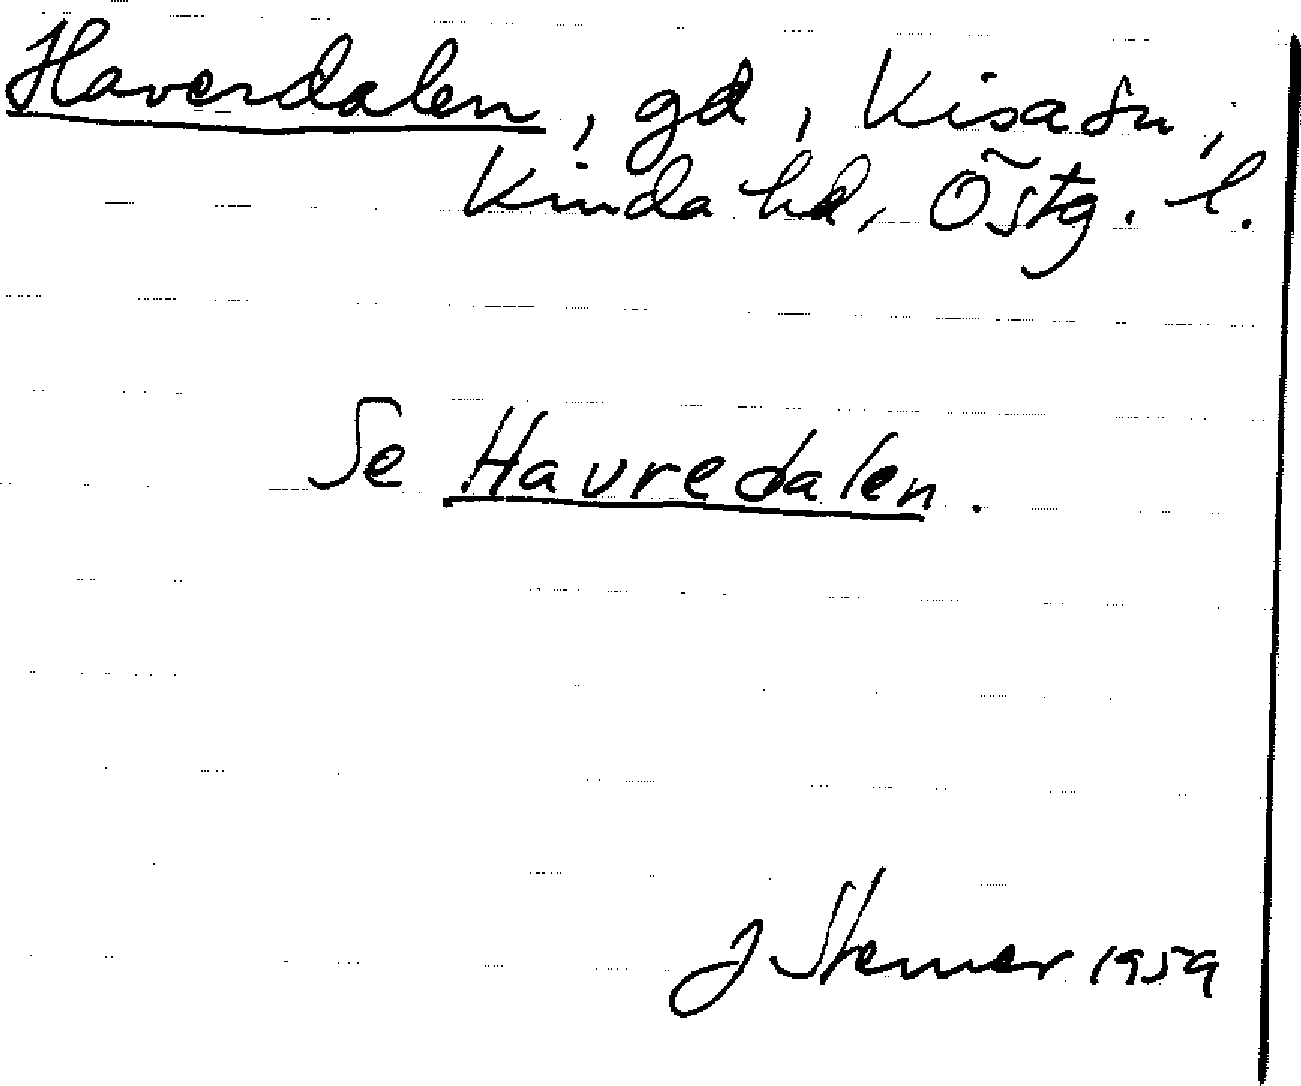 Haverdalen, gd, Kisa sn,
Kinda hd, Östg. l.
Se Havredalen.
J Sterner 1959